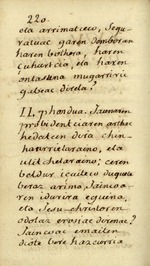 220.
eta arrimatcen, segu-
ratuac garen demboran
haren bothera, haren
cuhurtcia, eta haren
ontasuna mugarriric
gabeac direla?
II. phondua. Jaunaren
probidentciaren
hedatcen dira chin-
haurrietaraino, eta
ulitchetaraino; ceren
beldur içaiteco dugu
beraz arima Jaincoa-
ren idurira eguina,
eta Jesu-Christoren
odolaz erosiac direnac?
Jaincoac emaiten
diote bere hazcurria